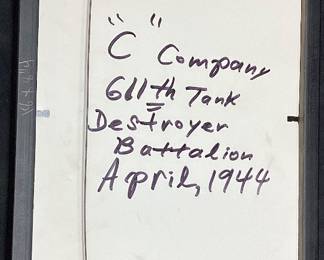 "C" Company
611th Tank
Destroyer
Battalion
April, 1944